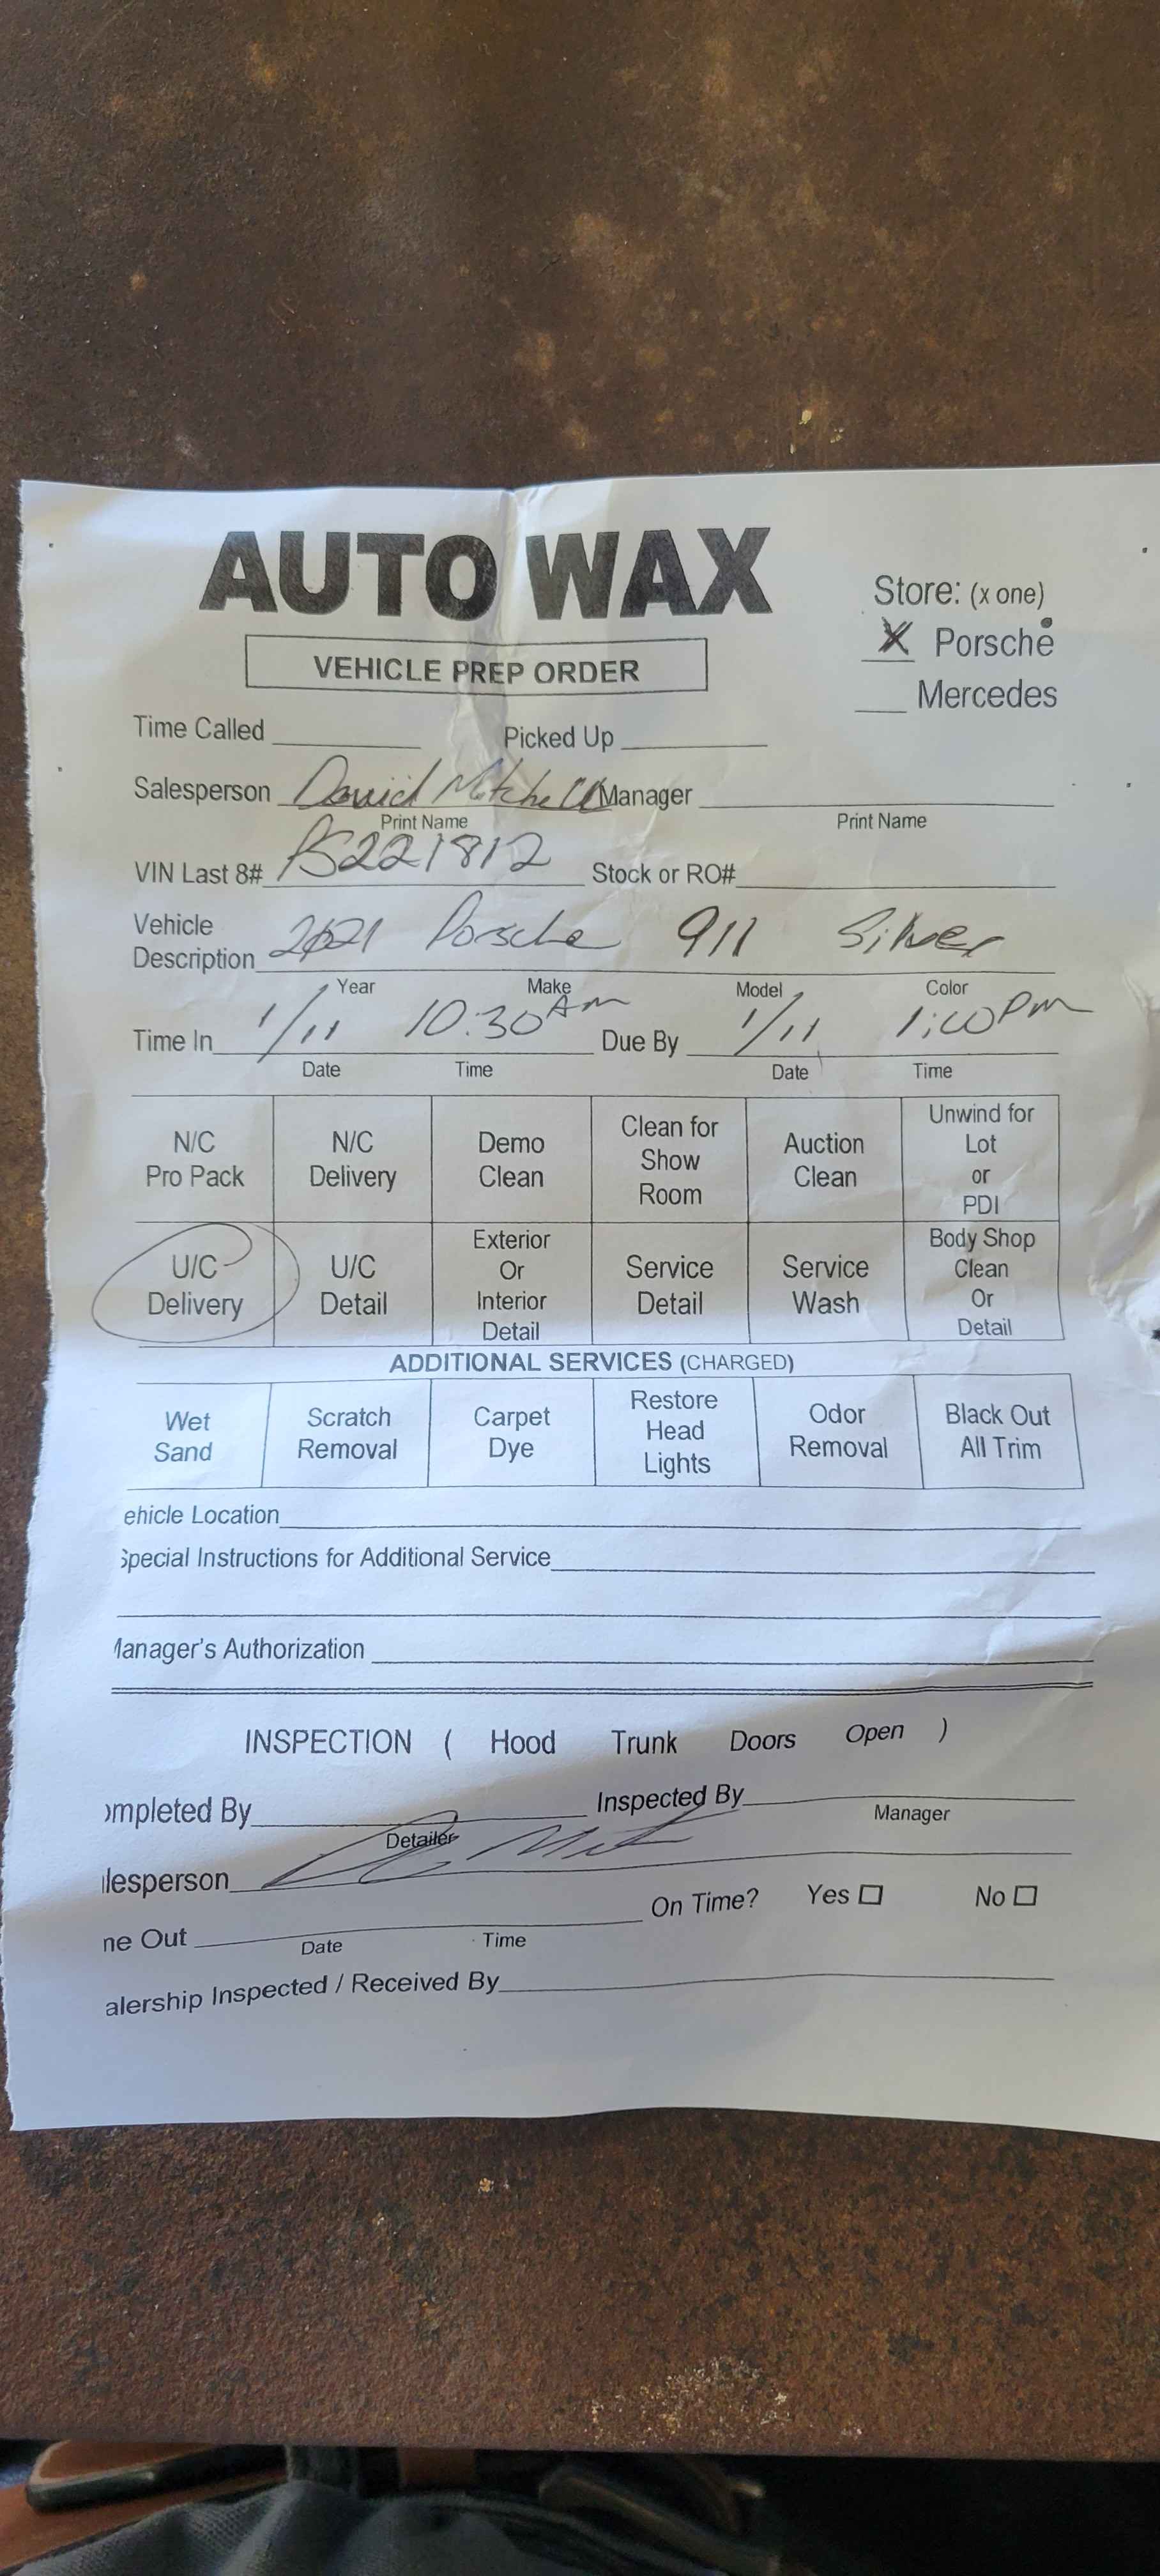 AUTO WAX
VEHICLE PREP ORDER
Store: (x one)
X Porsche
Mercedes
Time Called Picked Up
Salesperson David Mitchell Manager
Print Name Print Name
VIN Last 8# PS221812 Stock or RO#
Vehicle Description 2021 Porsche 911 Silver
Year Make Model Color
Time In 1/11 10:30 AM Due By 1/11 1:00 PM
Date Time Date Time
N/C Pro Pack N/C Delivery Demo Clean Clean for Show Room Auction Clean Unwind for Lot or PDI
U/C Delivery U/C Detail Exterior Or Interior Detail Service Detail Service Wash Body Shop Clean Or Detail
ADDITIONAL SERVICES (CHARGED)
Wet Sand Scratch Removal Carpet Dye Restore Head Lights Odor Removal Black Out All Trim
ehicle Location
Special Instructions for Additional Service
Manager's Authorization
INSPECTION ( Hood Trunk Doors Open )
ompleted By Inspected By
Detailer Manager
lesperson
On Time? Yes No
ne Out
Date Time
alership Inspected / Received By